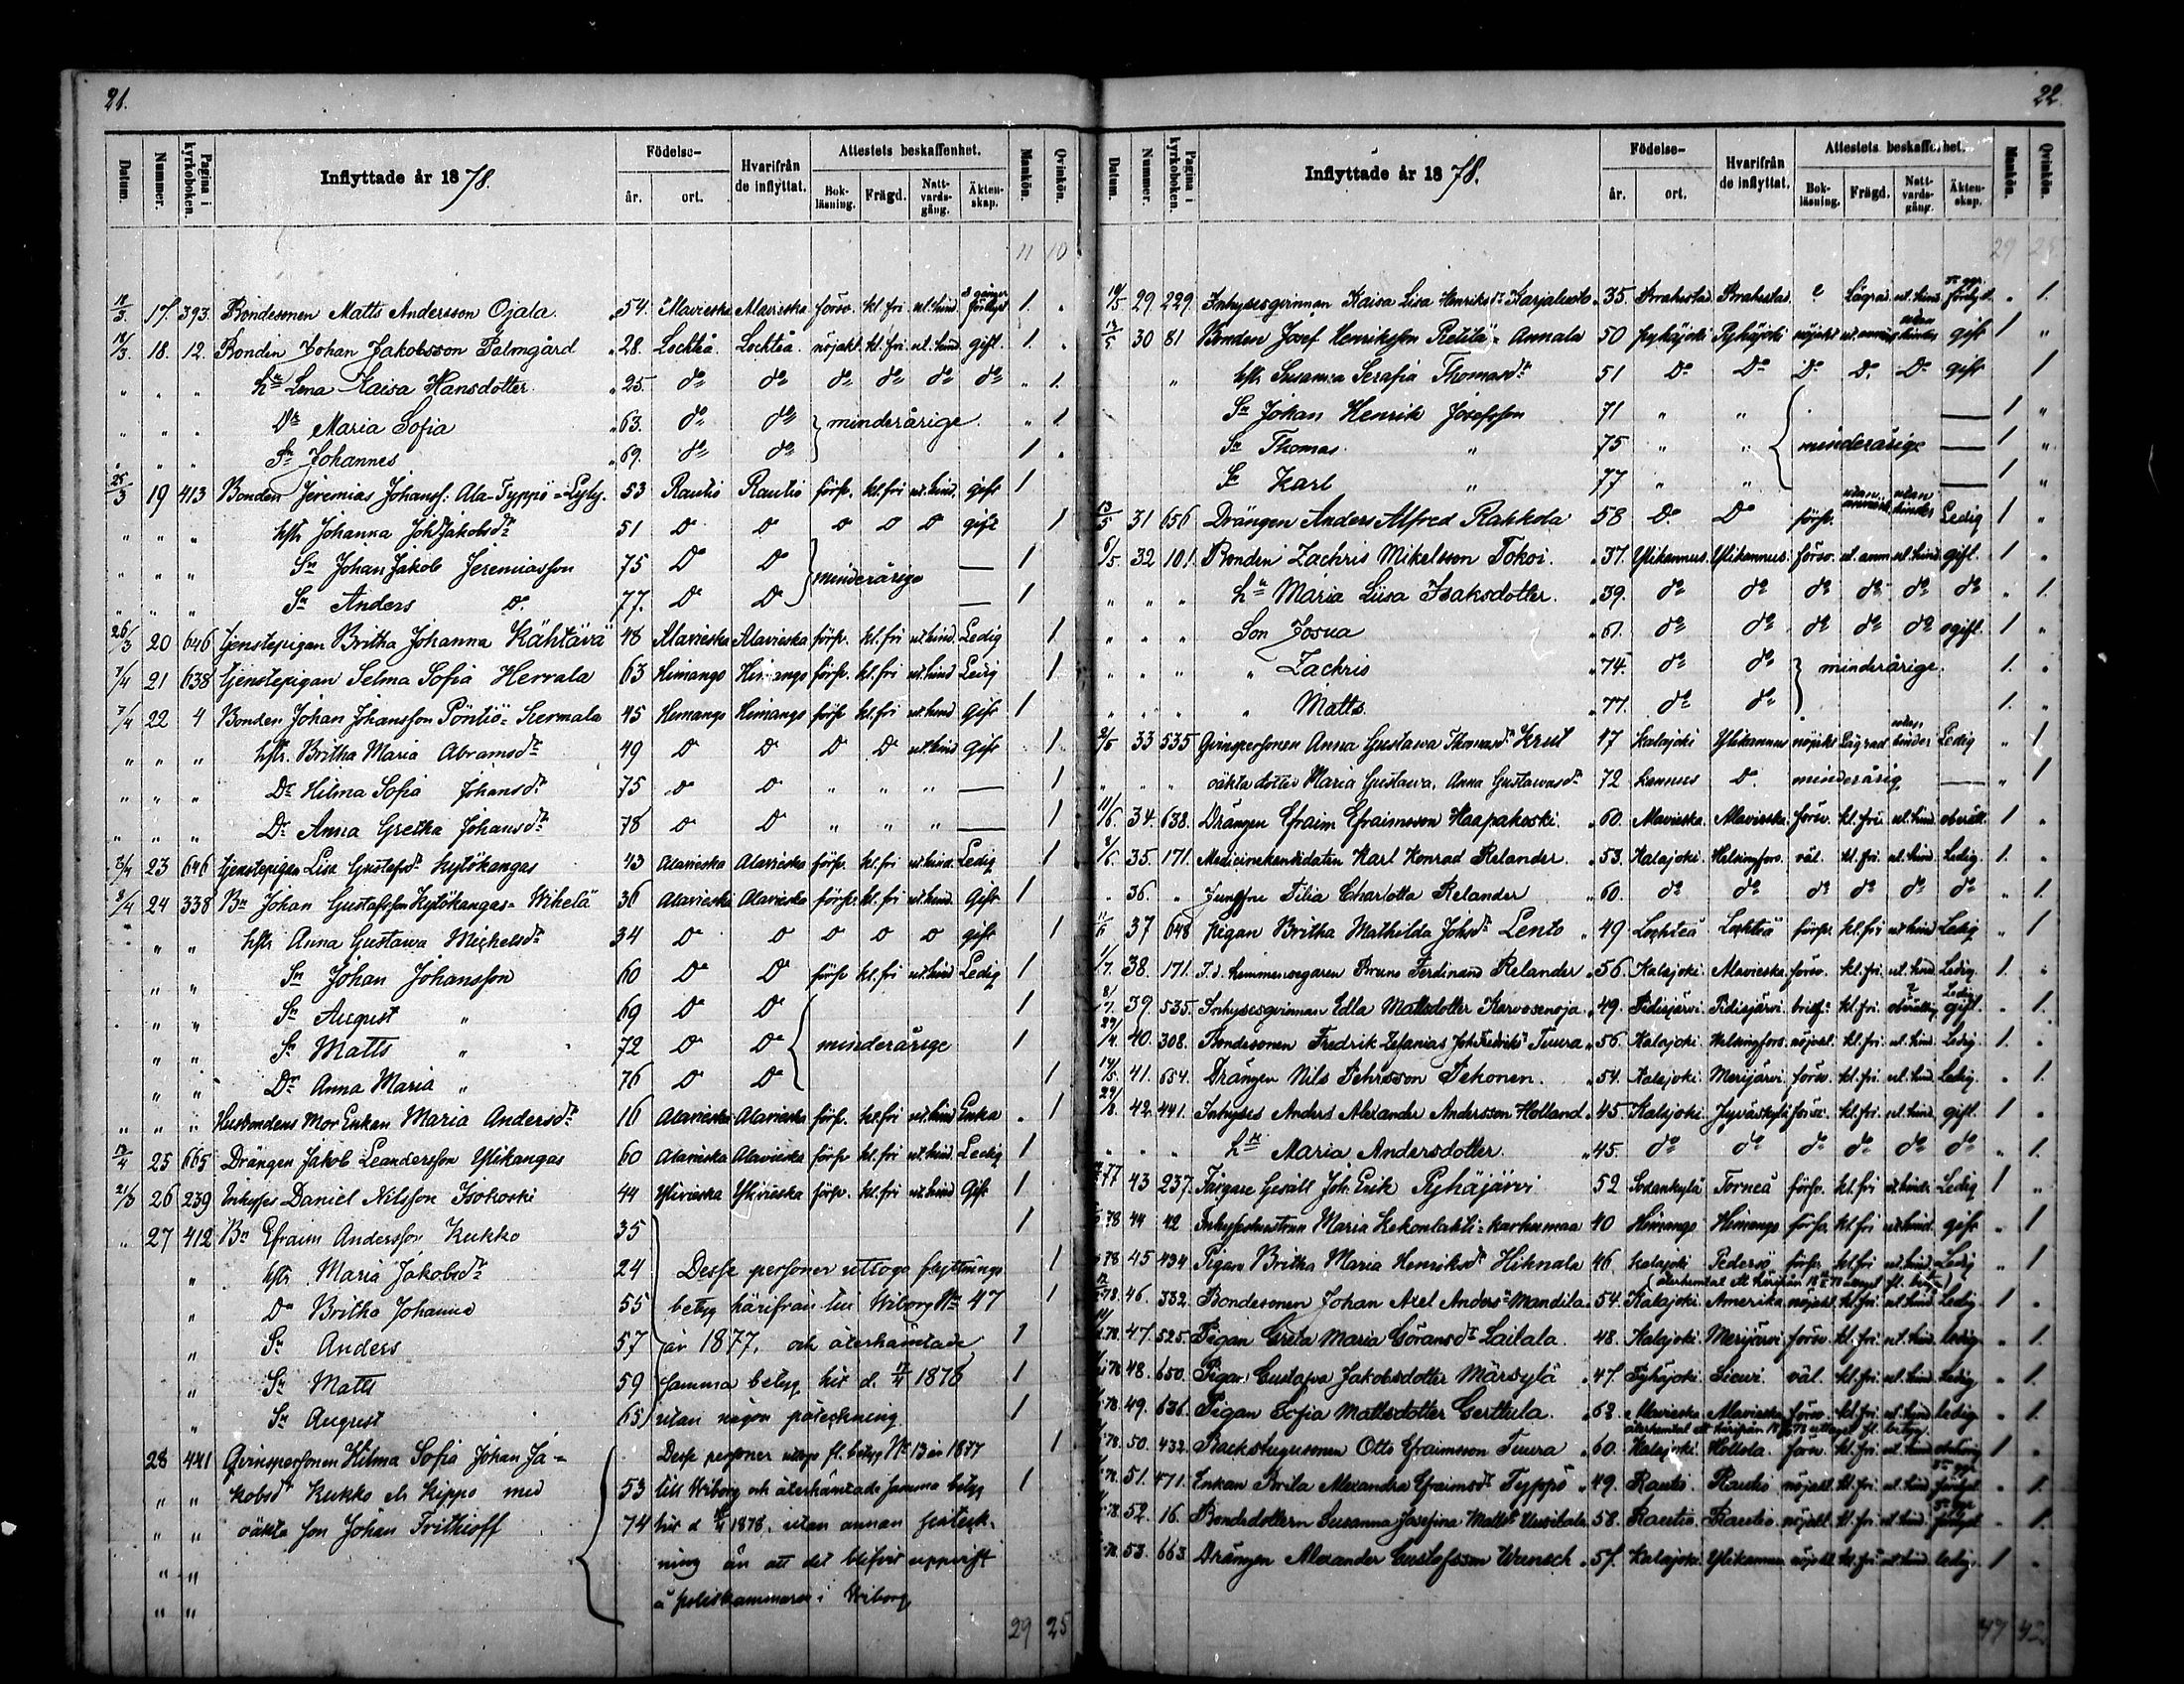 21.
Datum. Nummer. Pagina i kyrkoboken. Inflyttade år 1878. Födelse- år. ort. Hvarifrån de inflyttat. Attestets beskaffenhet. Bokläsning. Frägd. Nattvardsgång. Äktenskap. Mankön. Qvinkön.
11 10
18/3. 17. 393. Bondesonen Matts Andersson Ojala. 54. Alavieska Alavieska försv. kl. fri ut. hind. 1.
18/3. 18. 12. Bonden Johan Jakobsson Palmgård 28. Lochteå. Lochteå. nöjakt. kl. fri. ut. hind. gift. 1.
" " " Hu Lena Kaisa Hansdotter 25. do do do do do do " 1.
" " " Dr Maria Sofia 63. do do minderårige. " 1
" " " Sn Johannes 69. do do 1
25/3 19 413 Bonden Jeremias Johanss: Ala-Typpö=Lyly. 53 Rautio Rautio förſv. kl. fri ut. hind. gift 1
" " " hſtr Johanna Joh Jakobsdr 51 D D D D D gift 1
" " " Sn Johan Jakob Jeremiasſon 75 D D minderårige — 1
" " " Sn Anders D. 77. D D — 1
26/3 20 646 tjenstepigan Britha Johanna Kähtävä 48 Alavieska Alavieska förſv. kl. fri ut hind. Ledig 1
7/4 21 638 tjenstepigan Selma Sofia Herrala 63 Himango Himango förſv. kl. fri ut. hind Ledig 1
7/4 22 4 Bonden Johan Johansſon Pöntiö= 45 Himango Himango förſv kl. fri ut hind Gift 1
" " " hſtr. Britha Maria Abramsdr 49 D D D D ut. hind Gift 1
" " " Dr Hilma Sofia Johansdr 75 D D " " " — 1
" " " Dr Anna Gretha Johansdr 78 D D " " " — 1
23 646 tjenstepigan Lisa Gustafsdr Kytökangas 43 Alavieska Alavieska förſv. kl. fri ut. hind. Ledig 1
8/4 24 338 Bn Johan Gustafsſon Kytökangas= Wihelä 36 Alavieska Alavieska förſv. kl. fri ut. hind. Gift 1
" " hſtr Anna Gustawa Michelsdr 34 D D D D D gift 1
" " Sn Johan Johansſon 60 D D förſv kl. fri ut hind Ledig 1
" " Sn August " 69 D D 1
" " Sn Matts " 72 D D minderårige 1
" " Dr Anna Maria " 76 D D 1
" " " Husbondens Mor Enkan Maria Andersdr 16 Alavieska Alavieska förſv. kl. fri ut. hind Enka 1
25 665 Drängen Jakob Leandersſon Ylikangas 60 Alavieska Alavieska förſv kl. fri ut. hind. Ledig 1
21/3 26 239 Inhyſes Daniel Nilsſon Isokoski 44 Ylivieska Ylivieska förſv. kl. fri ut. hind Gift 1
" 27 412 Bn Efraim Andersſon Kukko 35 1
" hſtr Maria Jakobsdr 24 Desſe perſoner uttogo flyttnings 1
" Dr Britha Johanna 55 betyg härifrån till Wiborg No 47 1
" Sn Anders 57 år 1877, och återhämtade 1
" Sn Matts 59 ſamma betyg hit d. 1878 1
" Sn August 65 utan någon påteckning 1
28 441 Qvinsperſonen Hilma Sofia Johan Ja- Desſe perſoner uttogo fl. betyg No 13 år 1877 1
" " kobsdr Kukko eller Kippo med 53 till Wiborg och återhämtade ſamma betyg 1
" " oäkta ſon Johan Frithioff 74 hit d 1878, utan annan påteck-
" " ning än att det blifvit uppvist
" " å poliskammaren i Wiborg
29 25
22.
Datum. Nummer. Pagina i kyrkoboken. Inflyttade år 1878. Födelse- år. ort. Hvarifrån de inflyttat. Attestets beskaffenhet. Bokläsning. Frägd. Nattvardsgång. Äktenskap. Mankön. Qvinkön.
29 25
29. 229. Inhysesqvinnan Kaisa Lisa Henriksdr Karjaluoto 35 Brahestad Brahestad. Lägrad. ut. hind. " 1.
30 81 Bonden Josef Henriksſon Pietilä= Annala 50 Pyhäjoki Pyhäjoki nöjakt ut. anm utan hinder gift 1 "
" hſtr Susanna Serafia Thomasdr 51 Do Do Do Do Do gift 1
Sn Johan Henrik Josefsſon 71 " " — 1 "
Sn Thomas " 75 " " minderårige — 1 "
Sn Karl " 77 " " — 1 "
31 656 Drängen Anders Alfred Rahkola 58 Do Do förſv. utan anmärk. utan hinder Ledig 1 "
6/5. 32 101. Bonden Zachris Mikelsson Tokoi. 37. Ylikannus. Ylikannus. försv. ut. anm ut. hind. gift. 1. "
" " " Hu Maria Liisa Isaksdotter. 39. do do do do do do " 1.
" " " Son Josua 61. do do do do do ogift. 1. "
" " " " Zachris 74. do do minderårige. 1. "
" " " " Matts 77. do do 1. "
33 535 Qvinsperſonen Anna Gustawa Thomasdr 47 Kalajoki Ylikannus nöjakt Lägrad utan hinder Ledig " 1
" " " oäkta dotter Maria Gustawa, Anna Gustawasdr 72 Kannus Do minderårig — " 1
11/6. 34. 638. Drängen Efraim Efraimsson Haapakoski. 60. Alavieska. Alavieska. försv. kl. fri. ut. hind. 1. "
35. 171. Medicinekandidaten Karl Konrad Relander. 53. Kalajoki. Helsingfors. väl. kl. fri. ut. hind. Ledig. 1. "
" 36. " Jungfru Tilia Charlotta Relander 60. do do do do do do " 1.
37 648 Pigan Britha Mathilda Johsdr Lento 49 Lochteå Lochteå förſv. kl. fri ut hind Ledig " 1
1/7. 38. 171. T. d. Hemmansegaren Bruno Ferdinand Relander 56. Kalajoki. Alavieska. försv. kl. fri. ut. hind. Ledig. 1. "
8/7. 39. 535. Inhysesqvinnan Edla Mattsdotter Karvosenoja 49. Pidisjärvi. Pidisjärvi. kl. fri. Ledig gift. " 1.
40. 308. Bondesonen Fredrik Zefanias Joh. Fredriks. Tuura 56. Kalajoki. Helsingfors. nöjakt. kl. fri. ut. hind. Ledig. 1. "
41. 654. Drängen Nils Fehrsson Tekonen. 54. Kalajoki. Merijärvi. försv. kl. fri. ut. hind. Ledig. " 1.
42. 441. Inhyses Anders Alexander Andersson Holland 45 Kalajoki Jyväskylä försv. kl. fri. ut. hind. gift. 1 "
" " " Hu Maria Andersdotter 45. do do do do do do " 1.
77 43 237. Färgare Gesäll Joh. Erik Pyhäjärvi 52 Sodankylä Torneå förſv. kl. fri ut. hind. Ledig 1 "
78 44 42 Inhyſeshustrun Maria Kekonlahti=Karhumaa 40 Himango Himango förſv. kl. fri ut. hind. gift " 1
78 45 434 Pigan Britha Maria Henriksdr Hihnala 46 Kalajoki Pedersö förſv. kl. fri ut. hind Ledig " 1
78. 46. 332. Bondesonen Johan Axel Anders. Mandila 54. Kalajoki Amerika nöjakt. kl. fri. ut. hind. Ledig 1 "
78. 47. 525. Pigan Greta Maria Göransdr Laitala. 48. Kalajoki. Merijärvi försv. kl. fri. ut. hind. ledig. " 1.
78. 48. 650. Pigan Gustafva Jakobsdotter Märsylä 47. Pyhäjoki. Sievi. väl. kl. fri. ut. hind. Ledig " 1.
78. 49. 636. Pigan Sofia Mattsdotter Gerttula. 62. Alavieska Alavieska försv. kl. fri. ut. hind ledig. " 1.
78. 50. 432. Backstugusonen Otto Efraimsson Tuura 60. Kalajoki. Hollola. försv. kl. fri. ut. hind 1 "
78. 51. 471. Enkan Brita Alexandra Efraimsdr Typpö 49. Rautio. Rautio nöjakt. kl. fri. ut. hind. " 1.
78. 52. 16. Bondedottern Susanna Josefina Mattsdr Uusitalo 58. Rautio. Rautio. nöjakt. kl. fri. ut. hind. " 1.
78. 53. 663. Drängen Alexander Gustafsson Wunsch 57. Kalajoki. Ylikannus nöjakt. kl. fri. ut. hind. ledig. 1 "
47 42